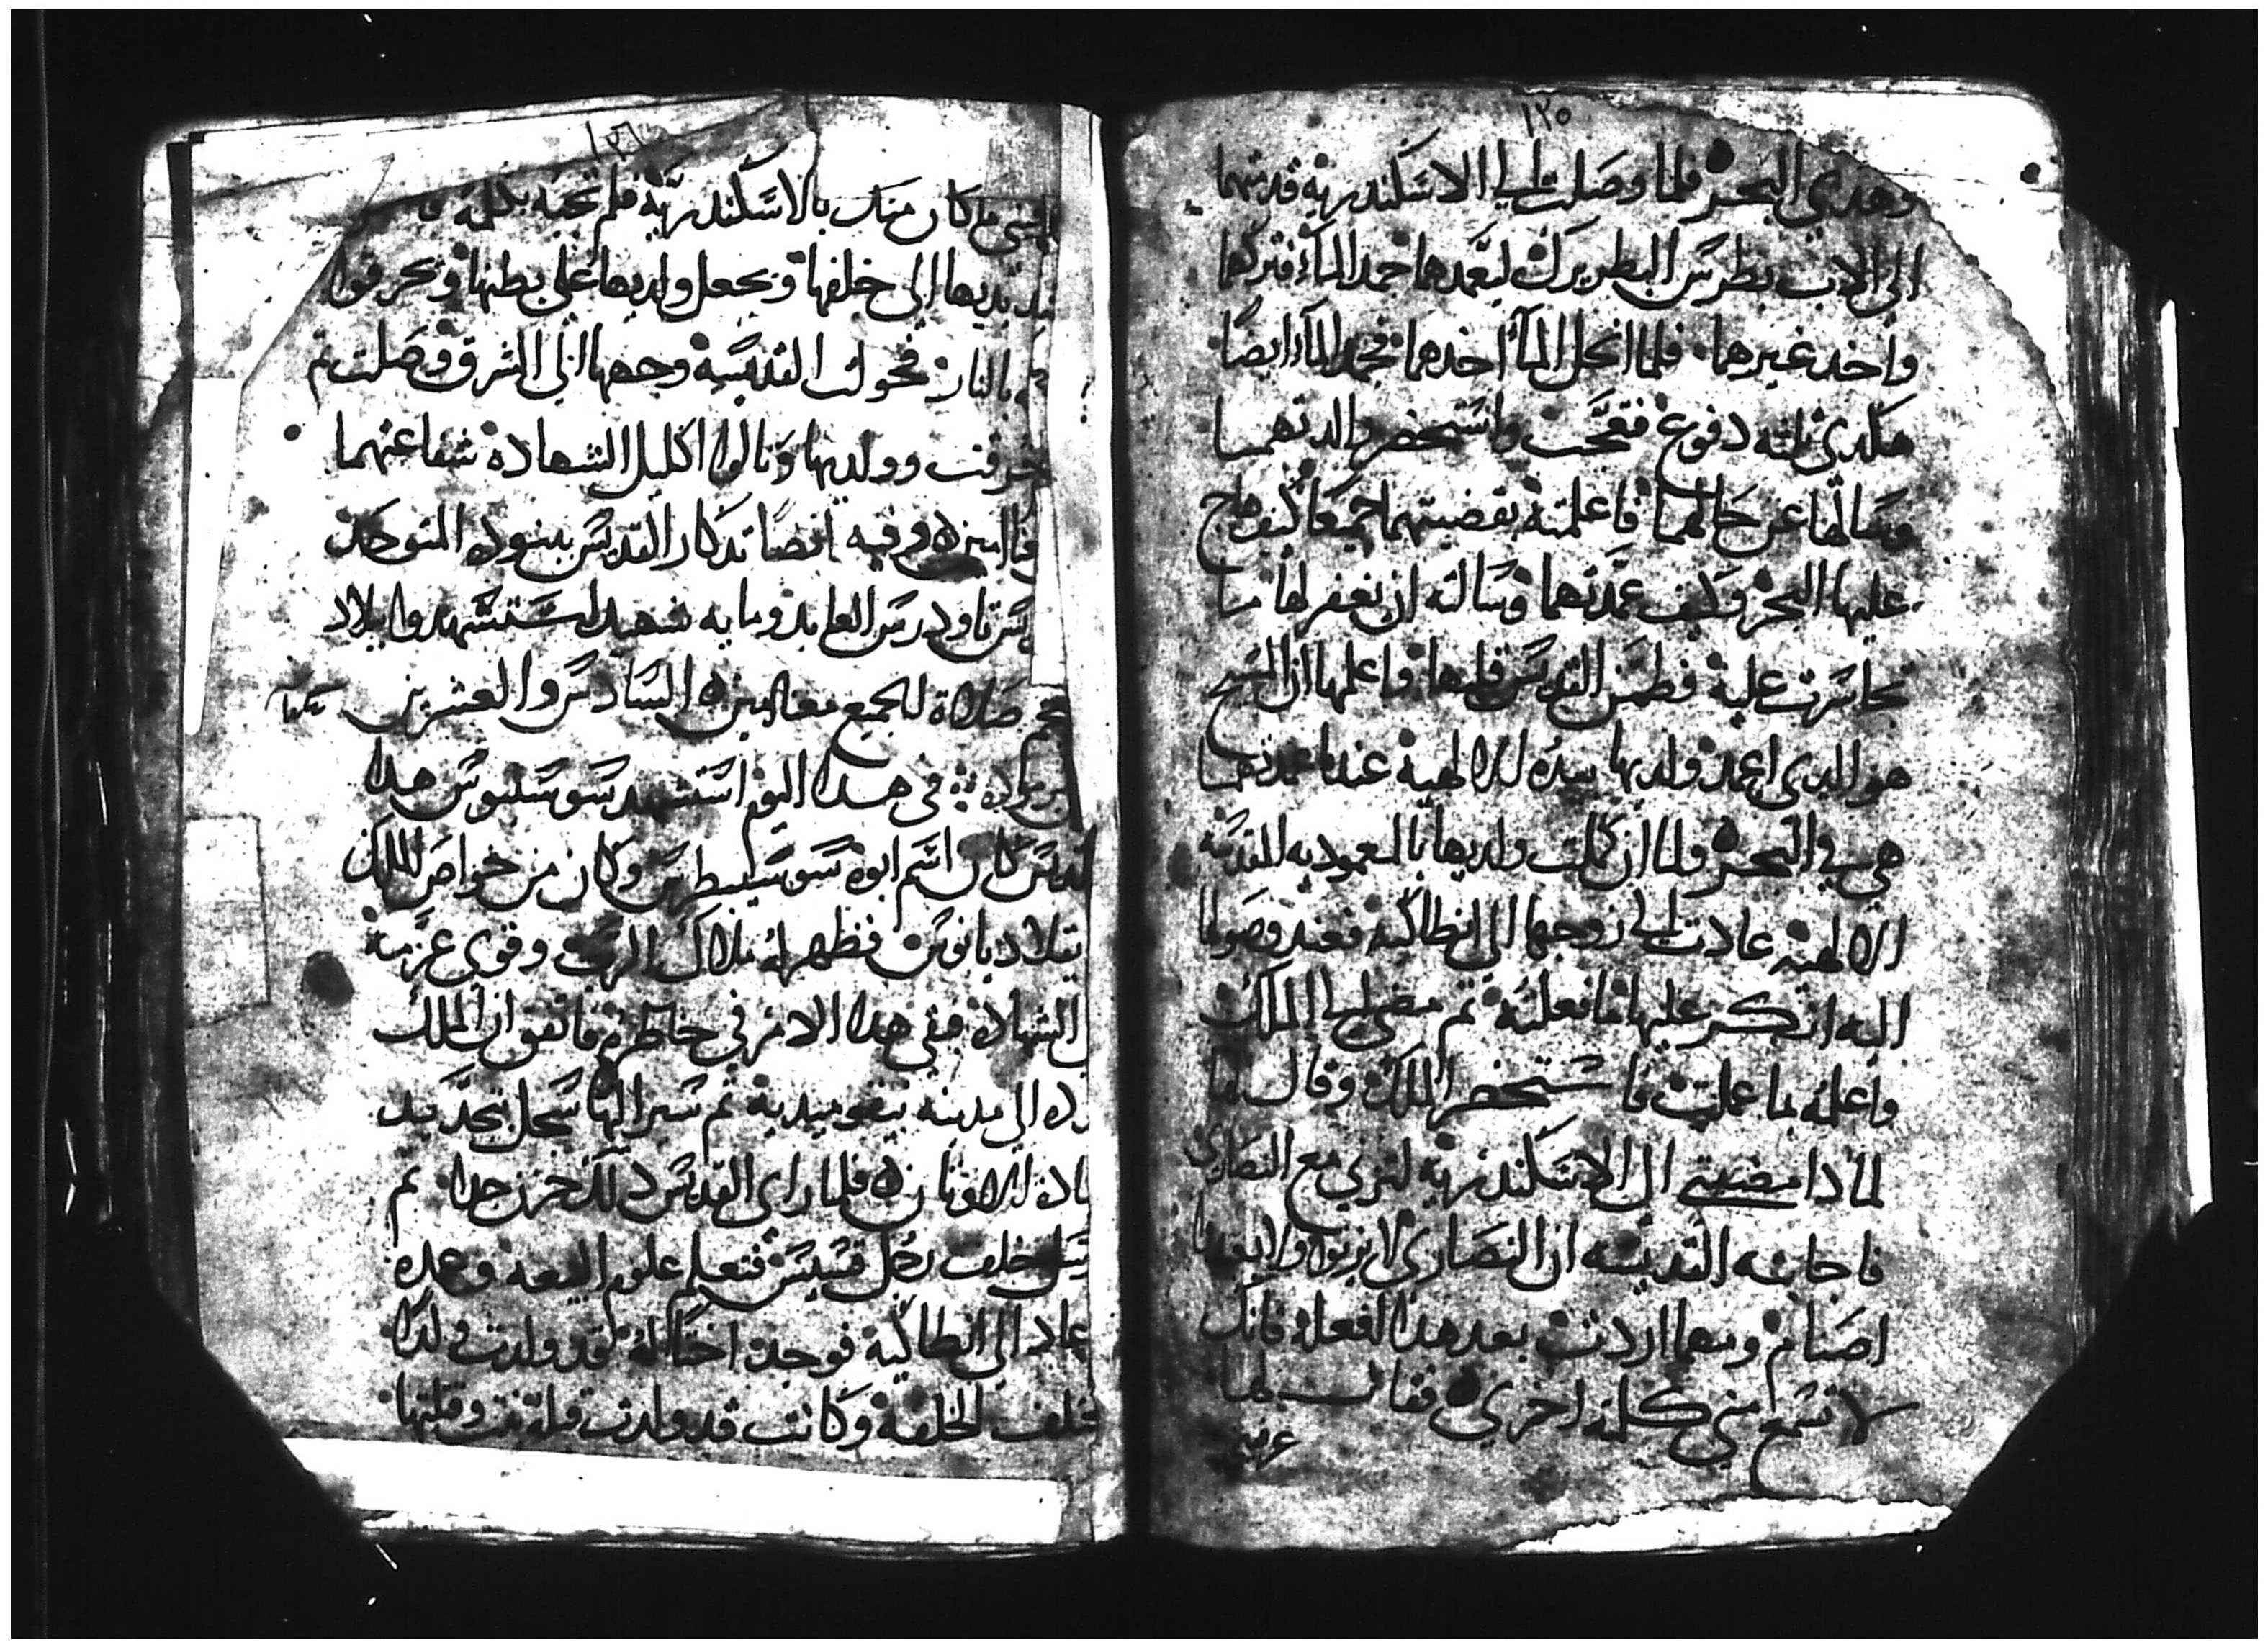 ١٢٥
وهدي البحر فلما وصلت الي الاسكندريه قدمتهما
الى الاب بطرس البطريرك ليعمدهما جمد الماء فتركهما
واخد غيرهما فلما انحل الماء اخدهما فجمد الماء ايضا
هكدي ثلثه دفوع فتعجب واستحضر والدتهما
وسالها عن حالهما فاعلمته بقضيتهما جميعا كيف هاج
عليها البحر وكيف عمدتهما وسالته ان يغفر لها ما
تجاسرت عليه فطمن القديس قلبها واعلمها ان المسيح
هو الدي اعمد ولديها بيده الالهيه عندما عمدتهما
هي في البحر ولما ان كملت ولديها بالمعموديه المقدسه
الالهيه عادت الي زوجها الى انطاكيه فعند وصولها
اليه انكر عليها ما فعلته ثم مضي الي الملك
واعلمه بما عملت فاستحضر الملك وقال لها
لمادا مضيتي الى الاسكندريه لتزني مع النصاري
فاجابته القديسه ان النصاري لا يزنوا ولا يعبدوا
اصنام ومهما اردت بعد هدا افعله فانك
لا تسمع مني كلمه اخري فقال لها
عرفيني
١٢٦
ما كان منك بالاسكندرية فلم تجبه بكلمه
يديها الى خلفها ويجعل ولديها على بطنها ويحرقوا
بالنار فحولت القديسه وجهها الى الشرق وصلت ثم
حرقت وولديها ونالوا اكليل الشهاده شفاعتهما
امين وفيه ايضا تدكار القديس المتوحد
تاودرس العابد ومايه شهيد استشهدوا ببلاد
صلاة الجميع معنا امين السادس والعشرين
برموده في هدا اليوم استشهد سوسنيوس هدا
القديس كان اسم ابوه سوسيبطرس وكان من خواص الملك
فظهر له ملاك الرب وقوي عزمه
الشهادة فبقي هدا الامر في خاطره فاتفق ان الملك
الي مدينه نيقوميديه ثم سير اليها سجل بتجديد
الاوثان فلما راي القديس دلك حزن جدا ثم
خلف رجل قسيس فتعلم علوم البيعه وعمده
عاد الى انطاكيه فوجد اختا له قد ولدت ولدا
الخلقه وكانت قد ولدت وقتلتها